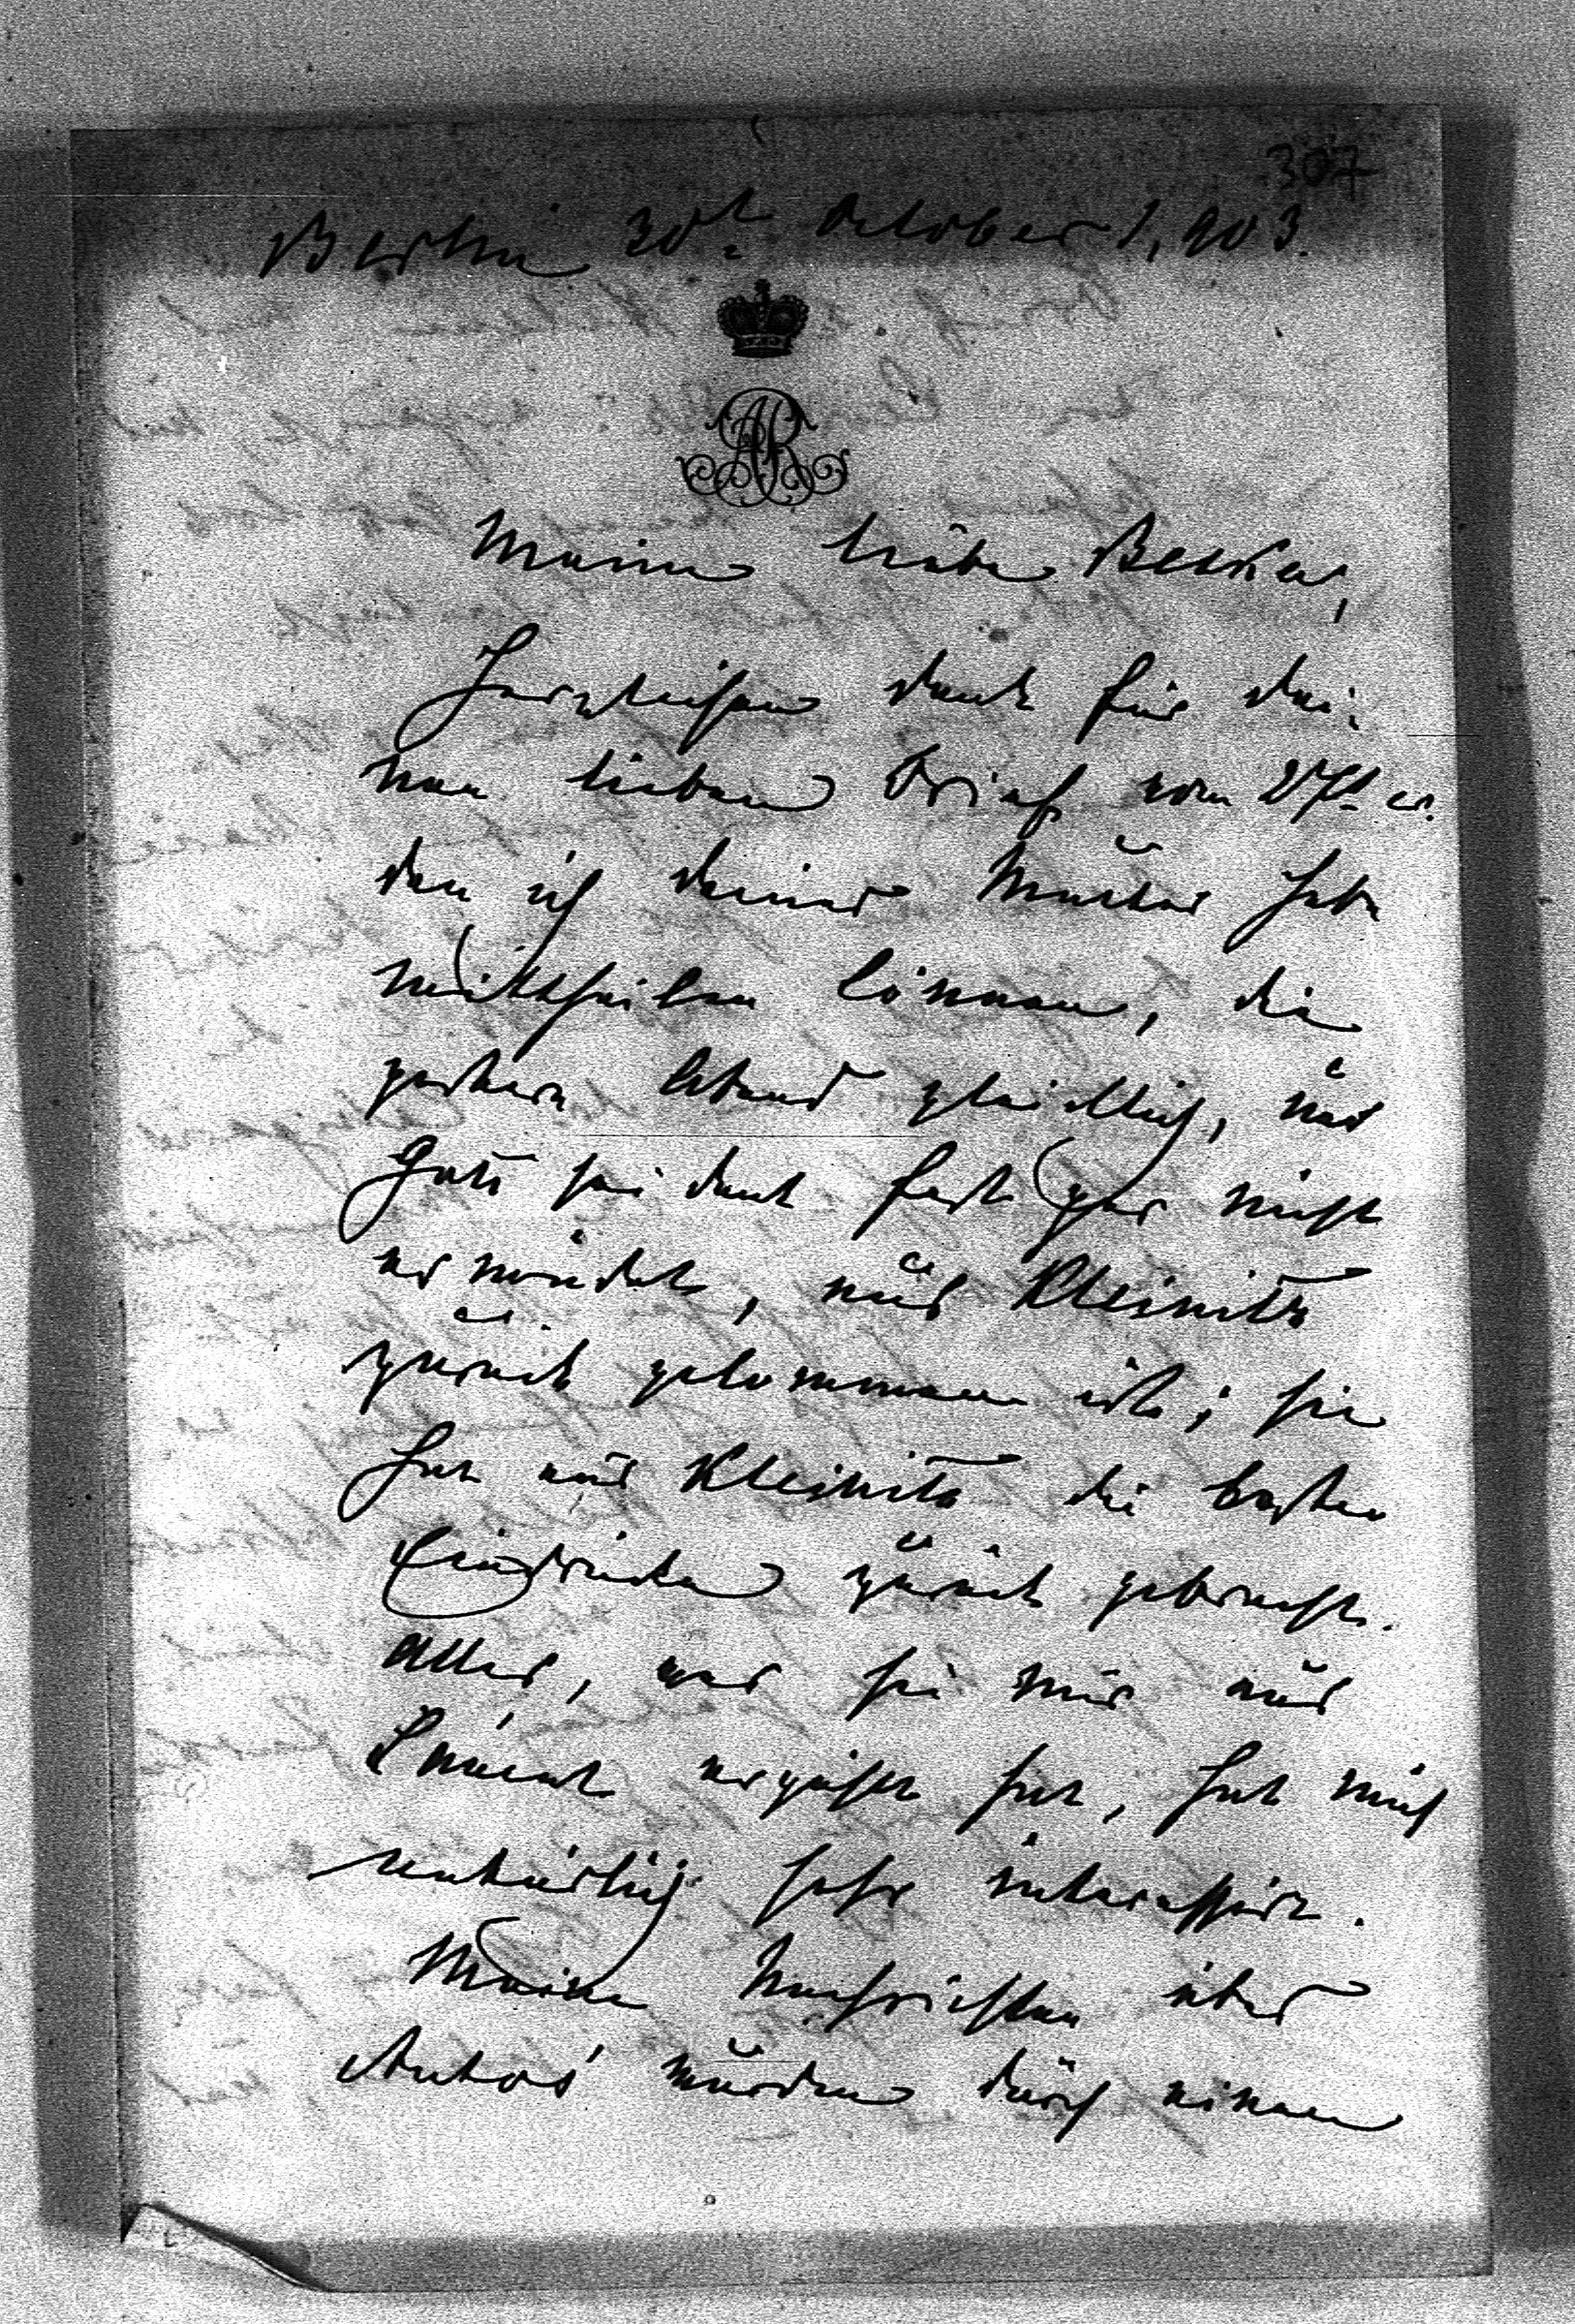 307
Berlin 30t October 1,903.
AR
Meine liebe Bertha,
Herzlichen dank für dei-
nen lieben Brief vom 27t cr.
den ich deiner Mutter habe
mittheilen können, die
gestern Abend glücklich, und
Gott sei dank fast gar nicht
ermüdet, aus Kleinitz
zurück gekommen ist; sie
hat aus Kleinitz die besten
Eindrücke zurück gebracht.
Alles, was sie mir aus
erzählt hat, hat mich
natürlich sehr interessirt.
Meine Nachrichten über
Antoś wurden durch einen